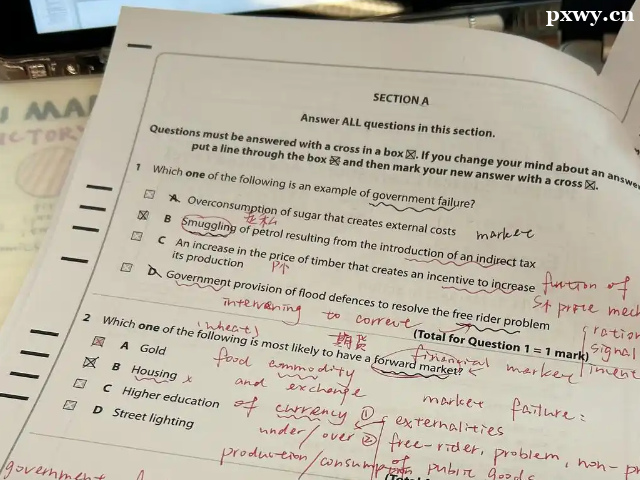 pxwy.cn
SECTION A
Answer ALL questions in this section.
Questions must be answered with a cross in a box ☒. If you change your mind about an answe
put a line through the box and then mark your new answer with a cross ☒.
1 Which one of the following is an example of government failure?
A Overconsumption of sugar that creates external costs market
走私
B Smuggling of petrol resulting from the introduction of an indirect tax
C An increase in the price of timber that creates an incentive to increase function of
its production P↑ mech
D Government provision of flood defences to resolve the free rider problem
intervening to correct ration
(Total for Question 1 = 1 mark) signal
2 Which one of the following is most likely to have a forward market?
(wheat) 期货 financial market
A Gold food commodity
B Housing x and exchange market failure:
C Higher education of currency ① externalities
D Street lighting under/over ② free-rider, problem, non-p
production/consumption of public goods
government